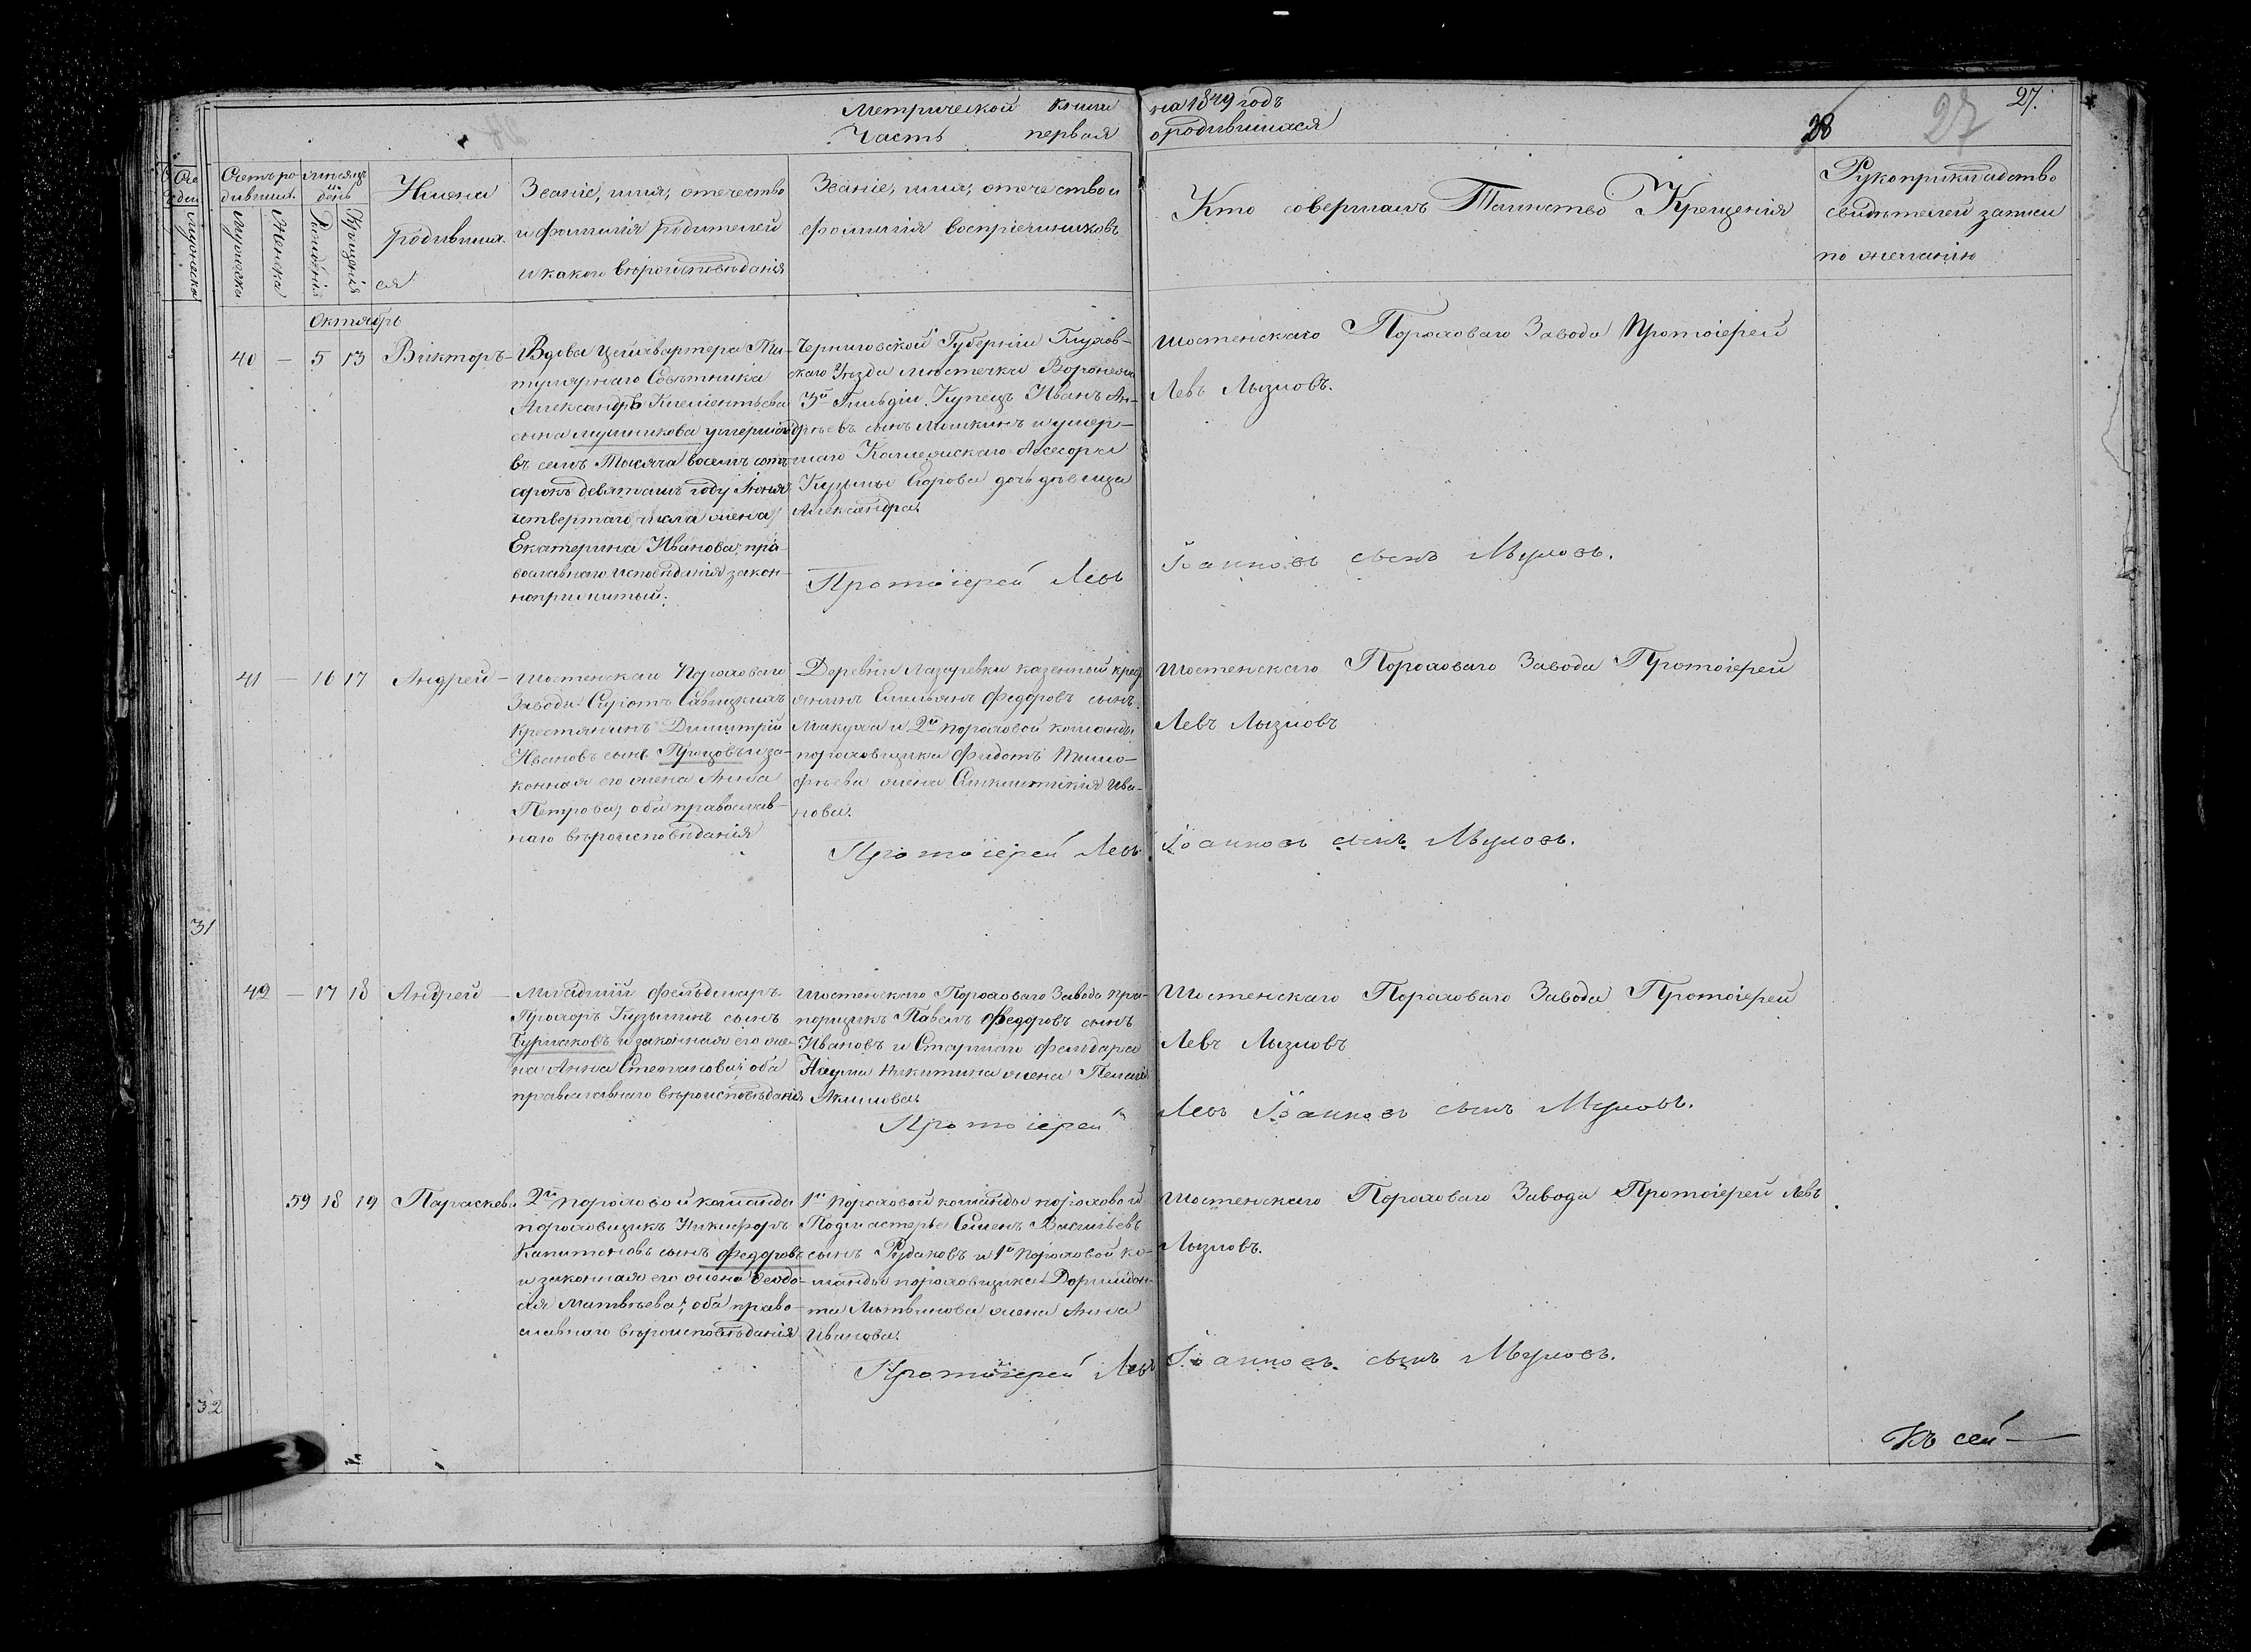 Метрической книги на 1849 годъ
Часть первая о родившихся
28 27 27.
Счетъ ро-
дивших.
мѣсяцъ
и
день
Мужеска
Женска
Рожденія
Крещенія
Имена
родивших-
ся
Званіе, имя, отечество
и фамилія родителей
и какого вѣроисповѣданія
Званіе, имя, отечество и
фамилія воспріемниковъ
Кто совершалъ Таинство Крещенія
Рукоприкладство
свидѣтелей записи
по желанію
Октябрь
40 — 5 13 Викторъ —
Вдова Цейхвартера Ти-
тулярнаго Совѣтника
Александра Клементьева
сына умершаго
въ семъ Тысяча восемъ сотъ
сорокъ девятомъ году Іюня
четвертаго числа жена
Екатерина Иванова, пра-
вославнаго исповѣданія закон-
Черниговской Губерніи Глухов-
скаго Уѣзда мѣстечка Воронежа
3й Гильдіи Купецъ Иванъ Ан-
дрѣевъ сынъ и умер-
шаго Ассесора
Кузьмы Егорова дочь дѣвица
Александра.
Шостенскаго Пороховаго Завода Протоіерей
Левъ
Протоіерей Левъ Іоанновъ сынъ
41 — 16 17 Андрей —
Шостенскаго Пороховаго
Завода
Крестьянинъ Димитрій
Ивановъ сынъ и за-
конная его жена Анна
Петрова, оба православ-
наго вѣроисповѣданія
Деревни Лазаревки казенный крес
янинъ Емельянъ Федоровъ сынъ
Макуха и 2й пороховой команды
пороховщика Федота Тимо-
фѣева жена Ива-
нова.
Шостенскаго Пороховаго Завода Протоіерей
Левъ
Протоіерей Левъ Іоанновъ сынъ
31
42 — 17 18 Андрей —
Младшій фельдшеръ
Прохоръ Кузьминъ сынъ
Бурлаковъ и законная его же-
на Анна Степанова, оба
православнаго вѣроисповѣданія
Шостенскаго Пороховаго Завода пра-
порщикъ Павелъ Федоровъ сынъ
Ивановъ и Старшаго
Наума Никитина жена Пелагія
Акимова.
Шостенскаго Пороховаго Завода Протоіерей
Левъ
Протоіерей Левъ Іоанновъ сынъ
59 18 19 Параскева
2й пороховой команды
пороховщикъ Никифоръ
Капитоновъ сынъ Федоровъ
и законная его жена Феодо-
сія Матвѣева, оба право-
славнаго вѣроисповѣданія
1й пороховой команды пороховой
Подмастерье Семенъ Васильевъ
сынъ Рудаковъ и 1й пороховой ко-
манды пороховщика Дормидон-
та Литвинова жена Анна
Иванова.
Шостенскаго Пороховаго Завода Протоіерей Левъ
Протоіерей Левъ Іоанновъ сынъ
32
Къ сей —